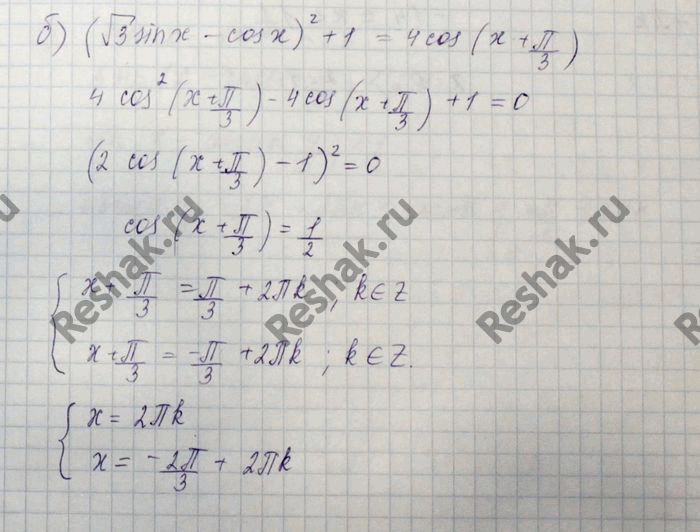 б) (√3 sin x - cos x)² + 1 = 4 cos (x + π/3)
4 cos² (x + π/3) - 4 cos (x + π/3) + 1 = 0
(2 cos (x + π/3) - 1)² = 0
cos (x + π/3) = 1/2
{ x + π/3 = π/3 + 2πk ; k ∈ Z
x + π/3 = -π/3 + 2πk ; k ∈ Z.
{ x = 2πk
x = -2π/3 + 2πk
Reshak.ru
Reshak.ru
Reshak.ru
Reshak.ru